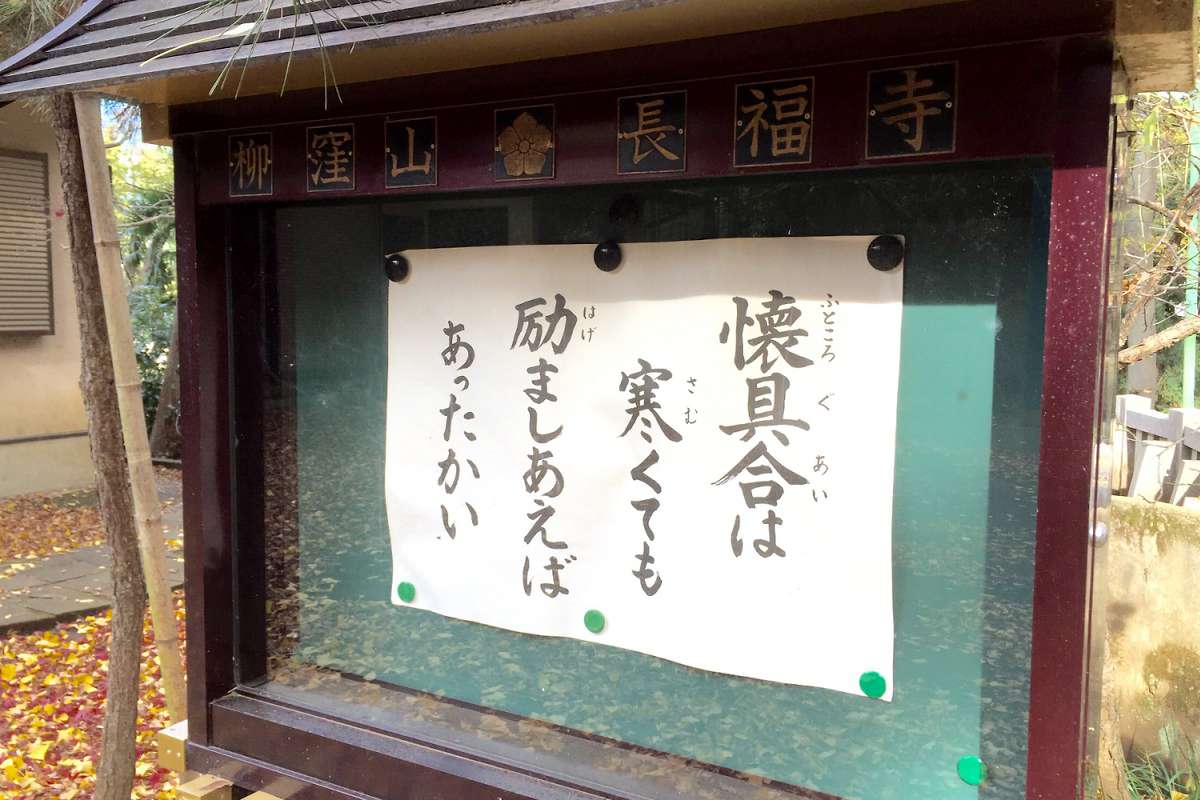 柳窪山 長福寺
懐具合は
ふところぐあい
寒くても
さむ
励ましあえば
はげ
あったかい